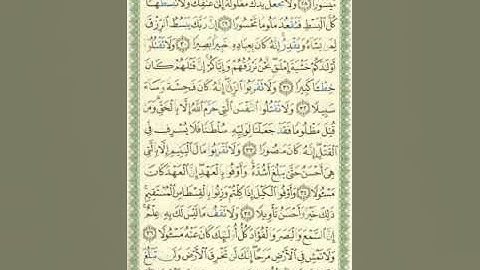 مَّيْسُورًا ٢٨ وَلَا تَجْعَلْ يَدَكَ مَغْلُولَةً إِلَىٰ عُنُقِكَ وَلَا تَبْسُطْهَا
كُلَّ ٱلْبَسْطِ فَتَقْعُدَ مَلُومًا مَّحْسُورًا ٢٩ إِنَّ رَبَّكَ يَبْسُطُ ٱلرِّزْقَ
لِمَن يَشَآءُ وَيَقْدِرُ ۚ إِنَّهُۥ كَانَ بِعِبَادِهِۦ خَبِيرًۢا بَصِيرًا ٣٠ وَلَا تَقْتُلُوٓا۟
أَوْلَٰدَكُمْ خَشْيَةَ إِمْلَٰقٍ ۖ نَّحْنُ نَرْزُقُهُمْ وَإِيَّاكُمْ ۚ إِنَّ قَتْلَهُمْ كَانَ
خِطْـًٔا كَبِيرًا ٣١ وَلَا تَقْرَبُوا۟ ٱلزِّنَىٰٓ ۖ إِنَّهُۥ كَانَ فَٰحِشَةً وَسَآءَ
سَبِيلًا ٣٢ وَلَا تَقْتُلُوا۟ ٱلنَّفْسَ ٱلَّتِى حَرَّمَ ٱللَّهُ إِلَّا بِٱلْحَقِّ ۗ وَمَن
قُتِلَ مَظْلُومًا فَقَدْ جَعَلْنَا لِوَلِيِّهِۦ سُلْطَٰنًا فَلَا يُسْرِف فِّى
ٱلْقَتْلِ ۖ إِنَّهُۥ كَانَ مَنصُورًا ٣٣ وَلَا تَقْرَبُوا۟ مَالَ ٱلْيَتِيمِ إِلَّا بِٱلَّتِى
هِىَ أَحْسَنُ حَتَّىٰ يَبْلُغَ أَشُدَّهُۥ ۚ وَأَوْفُوا۟ بِٱلْعَهْدِ ۖ إِنَّ ٱلْعَهْدَ كَانَ
مَسْـُٔولًا ٣٤ وَأَوْفُوا۟ ٱلْكَيْلَ إِذَا كِلْتُمْ وَزِنُوا۟ بِٱلْقِسْطَاسِ ٱلْمُسْتَقِيمِ ۚ
ذَٰلِكَ خَيْرٌ وَأَحْسَنُ تَأْوِيلًا ٣٥ وَلَا تَقْفُ مَا لَيْسَ لَكَ بِهِۦ عِلْمٌ ۚ
إِنَّ ٱلسَّمْعَ وَٱلْبَصَرَ وَٱلْفُؤَادَ كُلُّ أُو۟لَٰٓئِكَ كَانَ عَنْهُ مَسْـُٔولًا ٣٦
وَلَا تَمْشِ فِى ٱلْأَرْضِ مَرَحًا ۖ إِنَّكَ لَن تَخْرِقَ ٱلْأَرْضَ وَلَن تَبْلُغَ